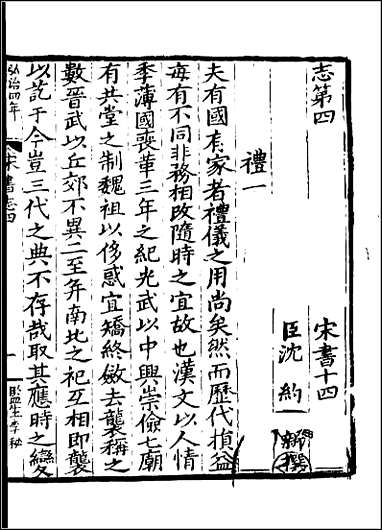 志第四
宋書十四
臣沈約
撰
禮一
夫有國有家者禮儀之用尚矣然而歷代損益
每有不同非務相改隨時之宜故也漢文以人情
季薄國喪華三年之紀光武以中興崇儉七廟
有共堂之制魏祖以侈惑宜矯終斂去襲稱之
數晉武以丘郊不異二至并南北之祀互相即襲
以訖于今豈三代之典不存哉取其應時之變
弘治四年
宋書志四
一
監生李